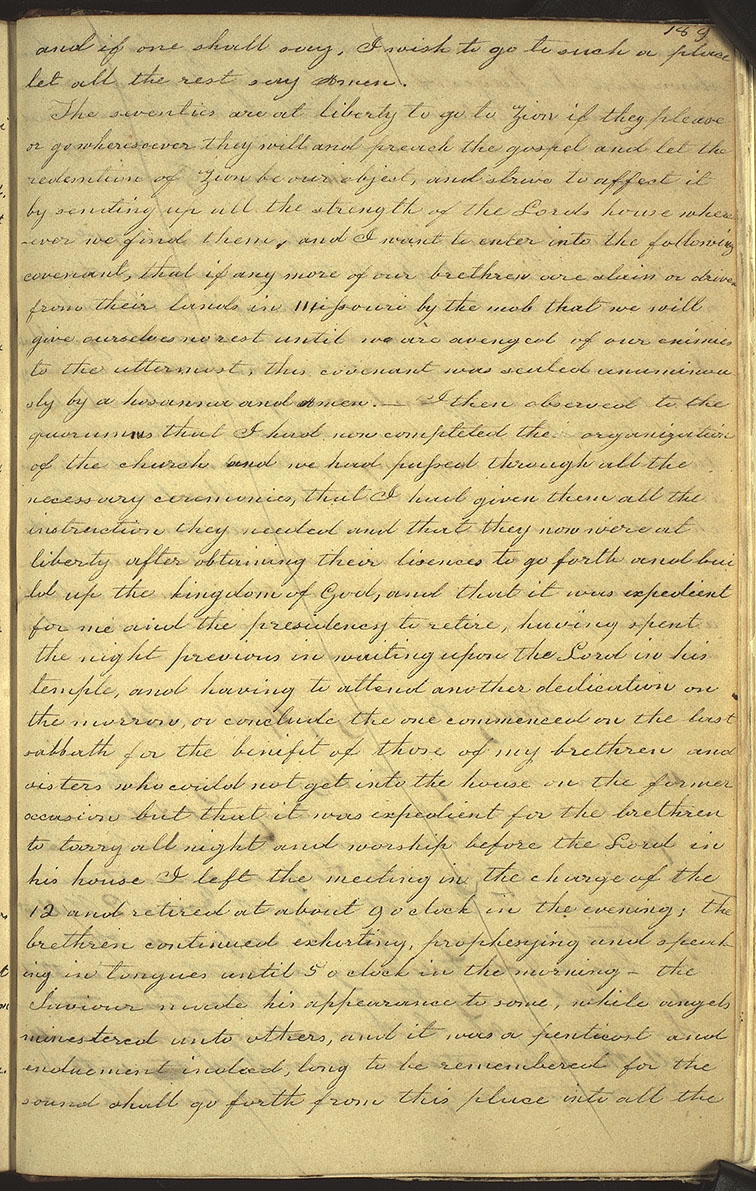 189
and if one shall say, I wish to go to such a place
let all the rest say Amen.
The seventies are at liberty to go to Zion if they please
or go wheresoever they will and preach the gospel and let the
redemtion of Zion be our object, and strive to affect it
by sending up all the strength of the Lords house where
-ever we find them, and I want to enter into the following
covenant, that if any more of our brethren are slain or driven
from their lands in Missouri by the mob that we will
give ourselves no rest until we are avenged of our enimies
to the uttermost, this covenant was sealed unaminou
sly by a hosanna and Amen. — I then observed to the
quorums that I had now completed the organization
of the church and we had passed through all the
necessary ceremonies, that I had given them all the
instruction they needed and that they now were at
liberty after obtaining their lisences to go forth and bui
ld up the kingdom of God, and that it was expedient
for me and the presidency to retire, having spent
the night previous in waiting upon the Lord in his
temple, and having to attend another dedication on
the morrow, or conclude the one commenced on the last
sabbath for the benifit of those of my brethren and
sisters who could not get into the house on the former
occasion but that it was expedient for the brethren
to tarry all night and worship before the Lord in
his house I left the meeting in the charge of the
12 and retired at about 9 o clock in the evening; The
brethren continued exhorting, prophesying and speak
ing in tongues until 5 o clock in the morning – the
Saviour made his appearance to some, while angels
minestered unto others, and it was a penticost and
enduement indeed, long to be remembered for the
sound shall go forth from this place into all the